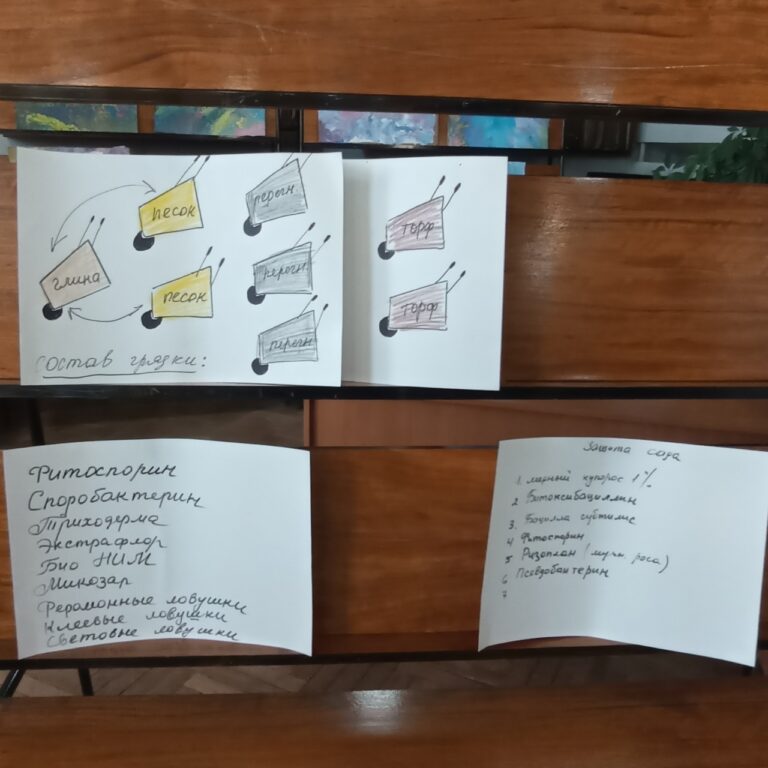 песок
перегн
торф
глина
песок
перегн
торф
перегн
Состав грядки:
Фитоспорин
Споробактерин
Триходерма
Экстрафлор
Био НИМ
Микозар
Феромонные ловушки
Клеевые ловушки
Световые ловушки
Защита сада
1. медный купорос 1%
2 Битоксибациллин
3. Бацилла субтилис
4 Фитоспорин
5 Ризоплан (мучн. роса)
6 Псевдобактерин
7